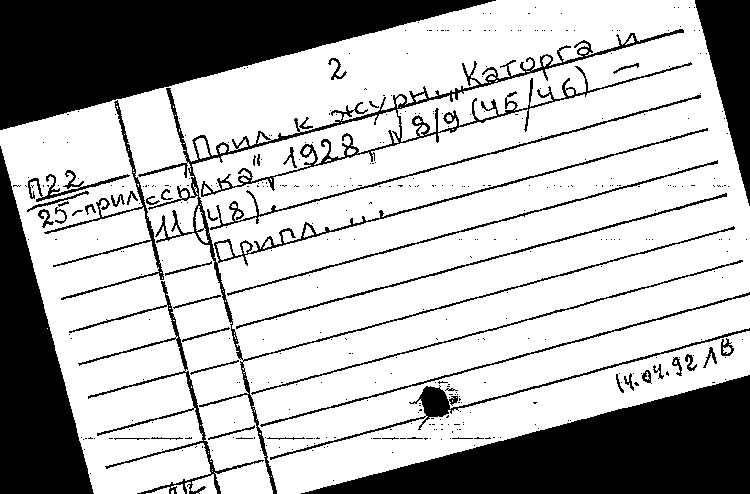 2
Прил. к журн. „Каторга и
П22
25-прил
ссылка" 1928, № 8/9 (45/46) —
11 (48).
Припл. ...
14.04.92 ЛВ